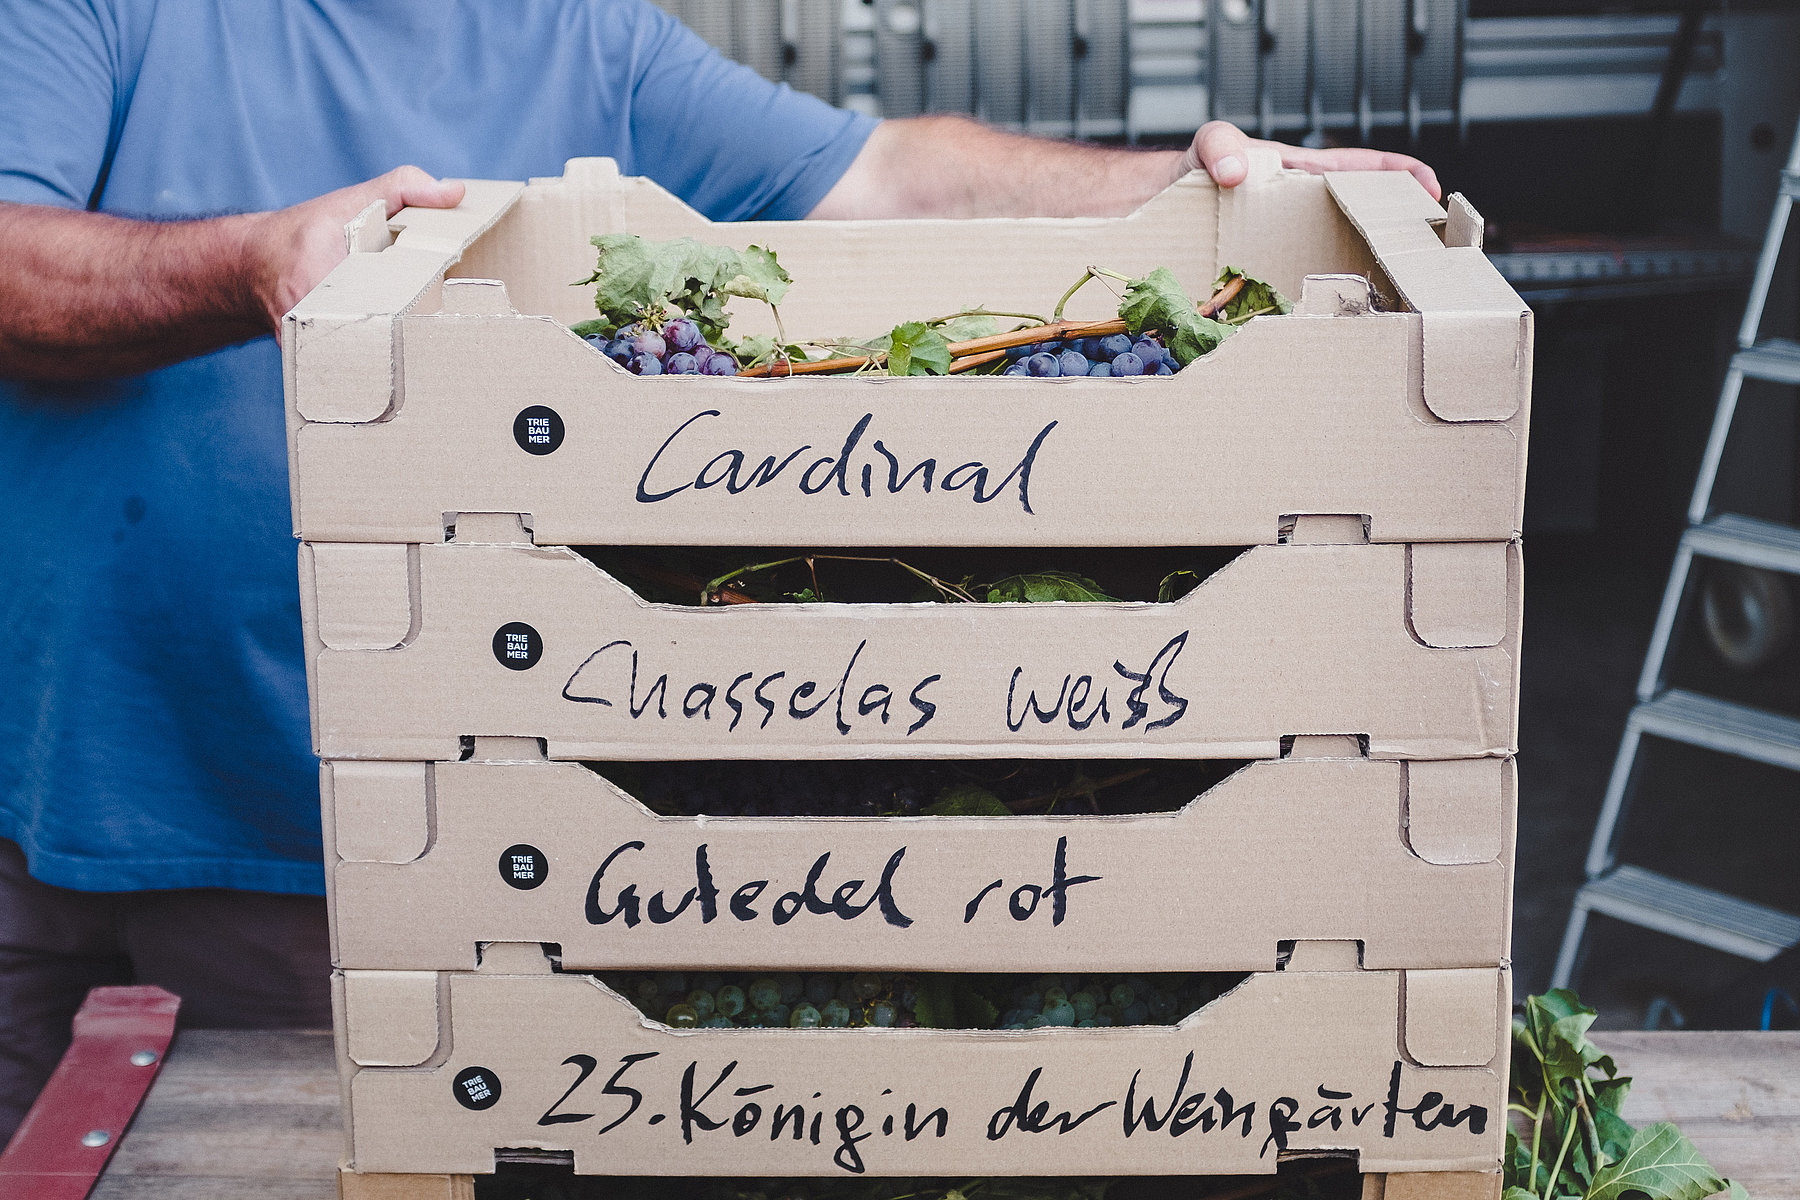 TRIE
BAU
MER
Cardinal
TRIE
BAU
MER
Chasselas weiß
TRIE
BAU
MER
Gutedel rot
TRIE
BAU
MER
25. Königin der Weingärten